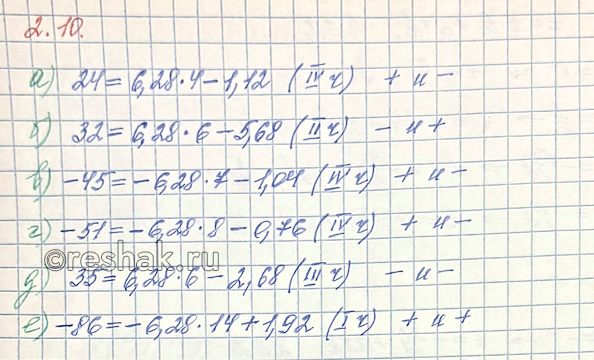 2.10.
а) 24 = 6,28·4 - 1,12 (IV ч) + и -
б) 32 = 6,28·6 - 5,68 (II ч) - и +
в) -45 = -6,28·7 - 1,04 (IV ч) + и -
г) -51 = -6,28·8 - 0,76 (IV ч) + и -
©reshak.ru
д) 35 = 6,28·6 - 2,68 (III ч) - и -
е) -86 = -6,28·14 + 1,92 (I ч) + и +